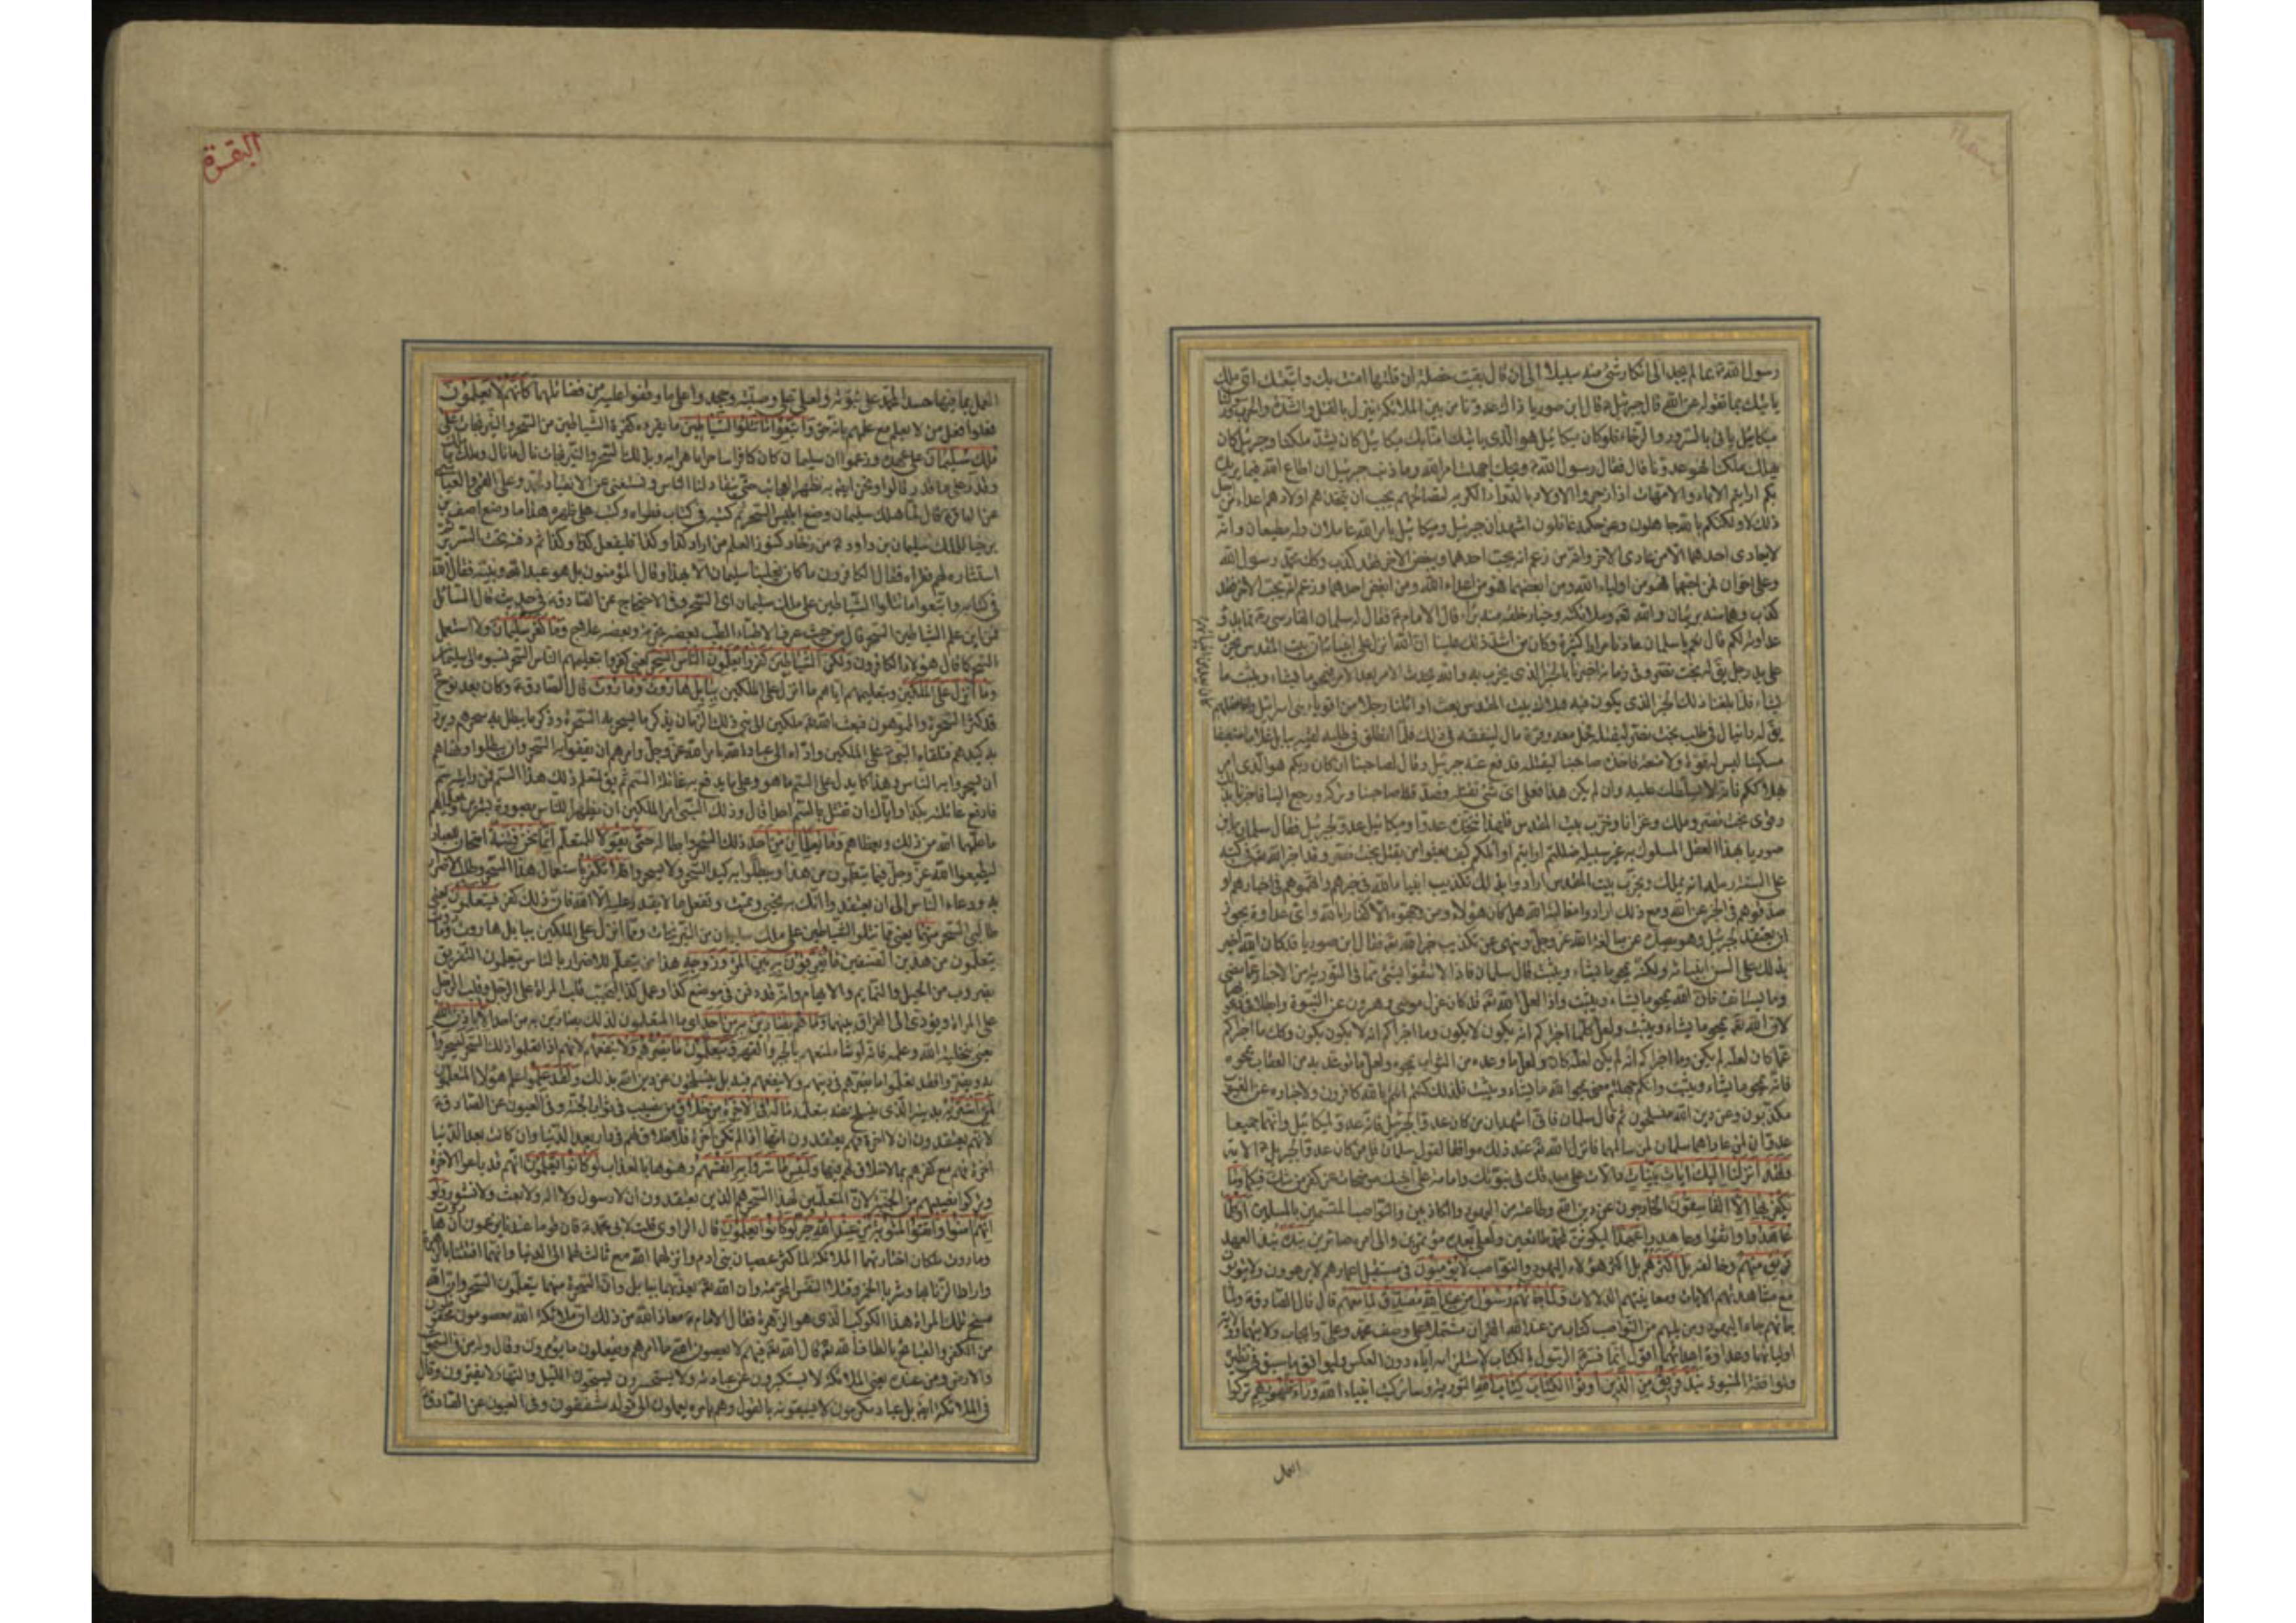 رسول الله عما لم يجد الى انكار شئ منه سبيلا الى ان قال بقيت خصلة ان قلتها امنت بك واتبعتك اى ملك
ياتيك بما تقوله عن الله قال جبرئيل قال ابن صوريا ذاك عدونا من بين الملائكة ينزل بالقتل والشدة والحرب ورسولنا
ميكائيل ياتى بالسرور والرخاء فلو كان ميكائيل هو الذى ياتيك امنا بك ميكائيل كان يشد ملكنا وجبرئيل كان
يهلك ملكنا فهو عدونا قال فقال رسول الله ويحك اجهلت امر الله وما ذنب جبرئيل ان اطاع الله فيما يريده
بكم ارايتم الاباء والامهات اذا اوجروا الاولاد بالدواء الكريه لمصالحهم يجب ان يتخذهم اولادهم اعداء من اجل
ذلك لا ولكنكم بالله جاهلون وعن حكمه غافلون اشهد ان جبرئيل وميكائيل بامر الله عاملان وله مطيعان وانه
لا يعادى احدهما الا من عادى الاخر وانه من زعم انه يحب احدهما ويبغض الاخر فقد كذب وكك محمد رسول الله
وعلى اخوان فمن احبهما فهو من اولياء الله ومن ابغضهما فهو من اعداء الله ومن ابغض احدهما وزعم انه يحب الاخر فقد
كذب وهما منه بريئان والله تعالى وملائكته وخيار خلقه منه براء قال الامام فقال له سلمان الفارسى فما بدؤ
عداوته لكم قال نعم يا سلمان عادانا مرارا كثيرة وكان من اشد ذلك علينا ان الله انزل على انبيائه ان بيت المقدس يخرب
على يد رجل يقال له بخت نصر وفى زمانه اخبرنا بالحين الذى يخرب به والله يحدث الامر بعد الامر فيمحو ما يشاء ويثبت ما
يشاء فلما بلغنا ذلك الحين الذى يكون فيه هلاك بيت المقدس بعث اوائلنا رجلا من اقوياء بنى اسرائيل وافاضلهم
يقال له دانيال فى طلب بخت نصر ليقتله فحمل معه وقر مال لينفقه فى ذلك فلما انطلق فى طلبه لقيه ببابل غلاما ضعيفا
مسكينا ليس له قوة ولا منعة فاخذه صاحبنا ليقتله فدفع عنه جبرئيل وقال لصاحبنا ان كان ربكم هو الذى امر
بهلاككم فانه لا يسلطك عليه وان لم يكن هذا فعلى اى شئ تقتله فصدقه صاحبنا وتركه ورجع الينا فاخبرنا بذلك
وقوى بخت نصر وملك وغزانا وخرب بيت المقدس فلهذا نتخذه عدوا وميكائيل عدو لجبرئيل فقال سلمان يا بن
صوريا بهذا العقل المسلوك به غير سبيله ضللتم ارايتم اوائلكم كيف بعثوا من يقتل بخت نصر وقد اخبر الله تعالى فى كتبه
على السنة رسله انه يملك ويخرب بيت المقدس ارادوا بذلك تكذيب انبياء الله فى خبرهم او اتهموهم فى اخبارهم او
صدقوهم فى الخبر عن الله ومع ذلك ارادوا مغالبة الله هل كان هؤلاء ومن وجهوه الا كفارا بالله واى عداوة يجوز
ان يعتقد لجبرئيل وهو يصد عن مغالبة الله عز وجل وينهى عن تكذيب خبر الله تعالى فقال ابن صوريا قد كان الله اخبر
بذلك على السن انبيائه ولكنه يمحو ما يشاء ويثبت قال سلمان فاذا لا تثقوا بشئ مما فى التورية من الاخبار عما مضى
وما يستانف فان الله يمحو ما يشاء ويثبت واذا لعل الله قد كان عزل موسى وهرون عن النبوة وابطلا فى دعواهما
لان الله تعالى يمحو ما يشاء ويثبت ولعل كلما اخبراكم انه يكون لا يكون وما اخبراكم انه لا يكون يكون وكك ما اخبراكم
عما كان لعله لم يكن وما اخبراكم انه لم يكن لعله كان ولعل ما وعده من الثواب يمحوه ولعل ما توعد به من العقاب يمحوه
فانه يمحو ما يشاء ويثبت وانكم جهلتم معنى يمحوا الله ما يشاء ويثبت فلذلك كنتم انتم بالله كافرون ولاخباره عن الغيوب
مكذبون وعن دين الله منسلخون ثم قال سلمان فانى اشهد ان من كان عدوا لجبرئيل فانه عدو لميكائيل وانهما جميعا
عدوان لمن عاداهما سلمان لمن سالمهما فانزل الله تعالى عند ذلك موافقا لقول سلمان قل من كان عدوا لجبريل الاية
ولقد انزلنا اليك ايات بينات دالات على صدقك فى نبوتك وامامة على اخيك موضحات عن كفر من شك فيكما وما
يكفر بها الا الفاسقون الخارجون عن دين الله وطاعته من اليهود والكاذبين والنواصب المتسمين بالمسلمين اوكلما
عاهدوا واثقوا وعاهدوا عهدا ليكونن لمحمد طائعين ولعلى بعده مؤتمرين والى امره صائرين نبذه نبذ العهد
فريق منهم وخالفه بل اكثرهم بل اكثر هؤلاء اليهود والنواصب لا يؤمنون فى مستقبل اعمارهم لا يرعوون ولا يتوبون
مع مشاهدتهم الايات ومعاينتهم الدلالات ولما جاءهم رسول من عند الله مصدق لما معهم قال قال الصادق ولما
جاءهم جاء اليهود ومن يليهم من النواصب كتاب من عند الله القران مشتملا على وصف محمد وعلى وايجاب ولايتهما وولاية
اوليائهما وعداوة اعدائهما اقول انما فسر الرسول بالكتاب لاستلزامه اياه دون العكس وليوافق ما سبق فى نظيره
ولموافقة المنبوذ نبذ فريق من الذين اوتوا الكتاب كتاب الله التورية وساير كتب انبياء الله وراء ظهورهم تركوا
العمل
البقرة
العمل بما فيها حسدا لمحمد على نبوته ولعلى على وصيته وجحدوا على ما وقفوا عليه من فضائلهما كانهم لا يعلمون
فعلوا فعل من لا يعلم مع علمهم بانه حق واتبعوا ما تتلوا الشياطين ما يقرء كفرة الشياطين من السحر والنيرنجات على
ملك سليمان على عهده وزعموا ان سليمان كان كافرا ساحرا ماهرا به وبذلك السحر والنيرنجات نال ما نال وملك ما ملك
وقدر على ما قدر قالوا ونحن ايضا به نظهر العجائب حتى ينقاد لنا الناس ونستغنى عن الانقياد لمحمد وعلى القمى والعياشى
عن الباقر قال لما هلك سليمان وضع ابليس السحر ثم كتبه فى كتاب فطواه وكتب على ظهره هذا ما وضع اصف بن
برخيا للملك سليمان بن داود من ذخاير كنوز العلم من اراد كذا وكذا فليفعل كذا وكذا ثم دفنه تحت السرير ثم
استثاره لهم فقراه فقال الكافرون ما كان يغلبنا سليمان الا بهذا وقال المؤمنون بل هو عبد الله ونبيه فقال الله
فى كتابه واتبعوا ما تتلوا الشياطين على ملك سليمان اى السحر وفى الاحتجاج عن الصادق فى حديث قال السائل
فمن اين علم الشياطين السحر قال من حيث عرف الاطباء الطب بعضه تجربة وبعضه علاج وما كفر سليمان ولا استعمل
السحر كما قال هؤلاء الكافرون ولكن الشياطين كفروا يعلمون الناس السحر يعنى كفروا بتعليمهم الناس السحر الذى نسبوه الى سليمان
وما انزل على الملكين وبتعليمهم اياهم ما انزل على الملكين ببابل هاروت وماروت قال الصادق وكان بعد نوح
قد كثر السحرة والمموهون فبعث الله تعالى ملكين الى نبى ذلك الزمان بذكر ما يسحر به السحرة وذكر ما يبطل به سحرهم ويرد
به كيدهم فتلقاه النبى على الملكين واداه الى عباد الله بامر الله عز وجل وامرهم ان يقفوا به السحر وان يبطلوا ونهاهم
ان يسحروا به الناس وهذا كما يدل على السم ما هو وعلى ما يدفع به غائلة السم ثم يقال لمتعلم ذلك هذا السم فمن رايته سم
فادفع غائلته بكذا واياك ان تقتل بالسم احدا قال وذلك النبى امر الملكين ان يظهرا للناس بصورة بشرين ويعلماهم
ما علمهما الله من ذلك ويعظاهم وما يعلمان من احد ذلك السحر وابطاله حتى يقولا للمتعلم انما نحن فتنة امتحان للعباد
ليطيعوا الله عز وجل فيما يتعلمون من هذا ويبطلوا به كيد السحر ولا يسحروا فلا تكفر باستعمال هذا السحر وطلب الاضرار
به ودعاء الناس الى ان يعتقدوا انك به تحيى وتميت وتفعل ما لا يقدر عليه الا الله فان ذلك كفر فيتعلمون يعنى
طالبى السحر منهما يعنى مما تتلوا الشياطين على ملك سليمان من النيرنجات ومما انزل على الملكين ببابل هاروت وماروت
يتعلمون من هذين الصنفين ما يفرقون به بين المرء وزوجه هذا من يتعلم للاضرار بالناس يتعلمون التفريق
بضروب من الحيل والتمايم والايهام وانه قد دفن فى موضع كذا وعمل كذا ليحبب قلب المراة على الرجل وقلب الرجل
على المراة ويؤدى الى الفراق بينهما وما هم بضارين به من احد اى ما المتعلمون لذلك بضارين به من احد الا باذن الله
يعنى بتخلية الله وعلمه فانه لو شاء لمنعهم بالجبر والقهر ويتعلمون ما يضرهم ولا ينفعهم لانهم اذا تعلموا ذلك السحر ليسحروا
به ويضروا فقد تعلموا ما يضرهم فى دينهم ولا ينفعهم فيه بل ينسلخون عن دين الله بذلك ولقد علموا علم هؤلاء المتعلمون
لمن اشتريه بدينه الذى ينسلخ عنه بتعلمه ما له فى الاخرة من خلاق من نصيب فى ثواب الجنة وفى العيون عن الصادق
لانهم يعتقدون ان لا اخرة فهم يعتقدون انها اذا لم تكن اخرة فلا خلاق لهم فى دار بعد الدنيا وان كانت بعد الدنيا
اخرة فهم مع كفرهم بها لا خلاق لهم فيها ولبئس ما شروا به انفسهم رهنوها بالعذاب لو كانوا يعلمون انهم قد باعوا الاخرة
وتركوا نصيبهم من الجنة لان المتعلمين لهذا السحر هم الذين يعتقدون ان لا رسول ولا اله ولا بعث ولا نشور ولو
انهم امنوا واتقوا لمثوبة من عند الله خير لو كانوا يعلمون قال الراوى قلت لابى محمد فان قوما عندنا يزعمون ان هاروت
وماروت ملكان اختارتهما الملائكة لما كثر عصيان بنى ادم وانزلهما الله مع ثالث لهما الى الدنيا وانهما افتتنا بالزهرة
وارادا الزنا بها وشربا الخمر وقتلا النفس المحرمة وان الله تعالى يعذبهما ببابل وان السحرة منهما يتعلمون السحر وان الله
مسخ تلك المراة هذا الكوكب الذى هو الزهرة فقال الامام معاذ الله من ذلك ان ملائكة الله معصومون محفوظون
من الكفر والقبائح بالطاف الله تعالى قال الله تعالى فيهم لا يعصون الله ما امرهم ويفعلون ما يؤمرون وقال وله من فى السموات
والارض ومن عنده يعنى الملائكة لا يستكبرون عن عبادته ولا يستحسرون يسبحون الليل والنهار لا يفترون وقال
فى الملائكة ايضا بل عباد مكرمون لا يسبقونه بالقول وهم بامره يعملون الى قوله مشفقون وفى العيون عن الصادق